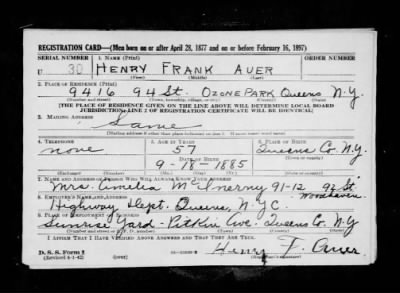 REGISTRATION CARD—(Men born on or after April 28, 1877 and on or before February 16, 1897)
SERIAL NUMBER 1. NAME (Print) ORDER NUMBER
U 30 HENRY FRANK AUER
(First) (Middle) (Last)
2. PLACE OF RESIDENCE (Print)
9416 94 St. OZONE PARK Queens N.Y.
(Number and street) (Town, township, village, or city) (County) (State)
[THE PLACE OF RESIDENCE GIVEN ON THE LINE ABOVE WILL DETERMINE LOCAL BOARD
JURISDICTION; LINE 2 OF REGISTRATION CERTIFICATE WILL BE IDENTICAL]
3. MAILING ADDRESS
Same
4. TELEPHONE 5. AGE IN YEARS 6. PLACE OF BIRTH
none 57 Queens Co.
DATE OF BIRTH
9-18-1885 N.Y.
7. NAME AND ADDRESS OF PERSON WHO WILL ALWAYS KNOW YOUR ADDRESS
Mrs. Amelia McInerny 91-12 92 St. Woodhaven
8. EMPLOYER'S NAME AND ADDRESS
Highway Dept. Queens, N.Y.C.
9. PLACE OF EMPLOYMENT OR BUSINESS
Sunrise Yard - Pitkin Ave. Queens Co. N.Y.
I AFFIRM THAT I HAVE VERIFIED ABOVE ANSWERS AND THAT THEY ARE TRUE.
D. S. S. Form 1
(Revised 4-1-42) Henry F. Auer